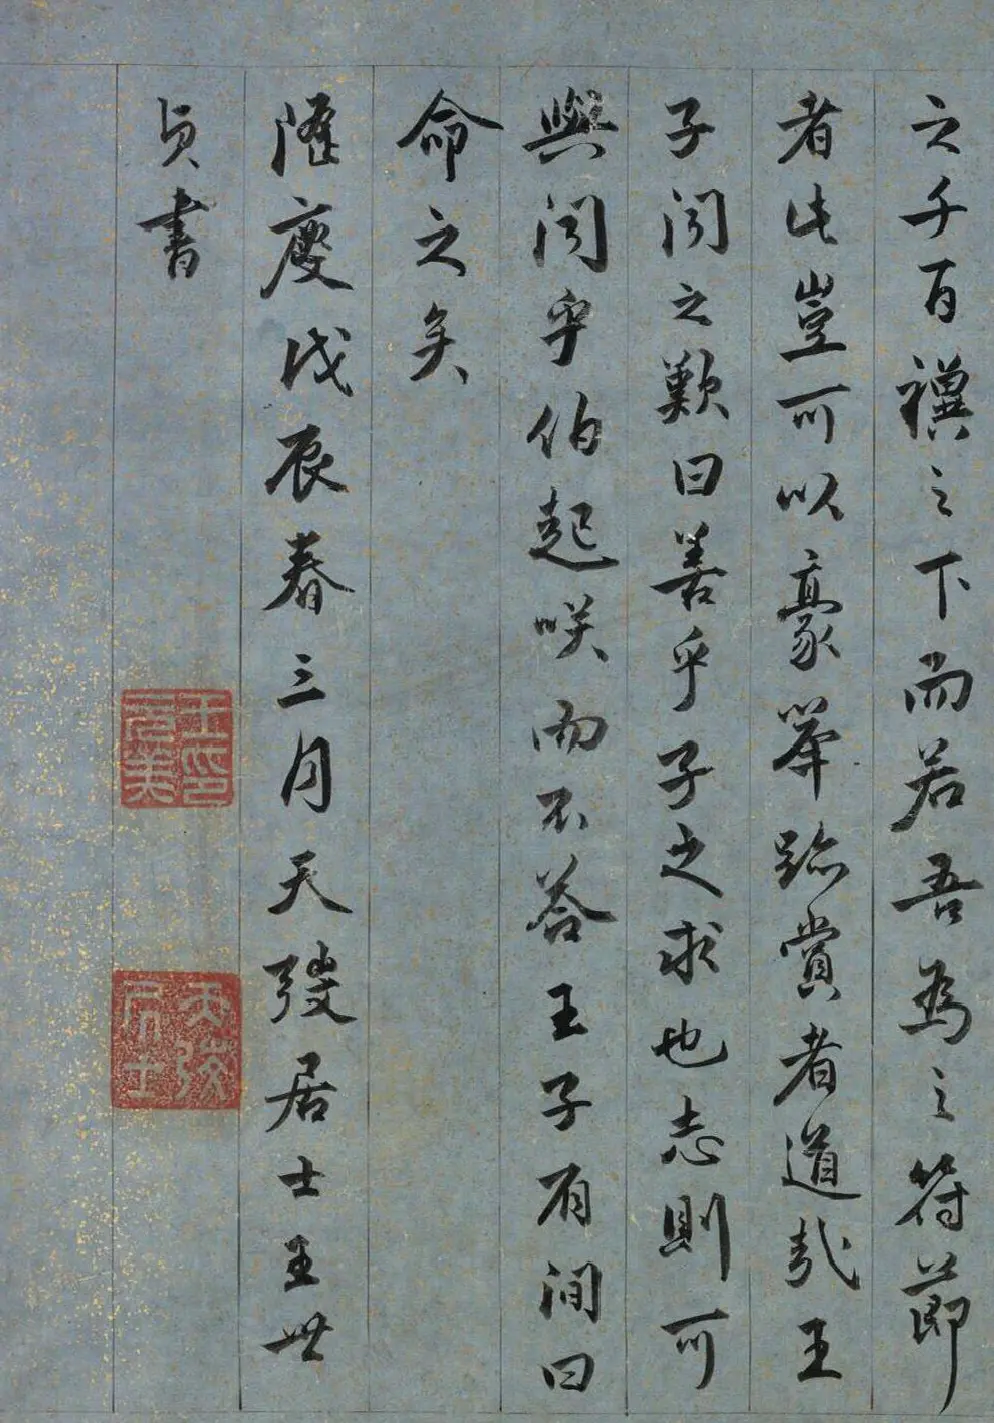 之千百禩之下而若吾為之符節
者此豈可以豪舉跡賞者道哉王
子聞之歎曰善乎子之求也志則可
與聞乎伯起咲而不答王子有間曰
命之矣
隆慶戊辰春三月天弢居士王世
貞書
王元美印
天弢居士